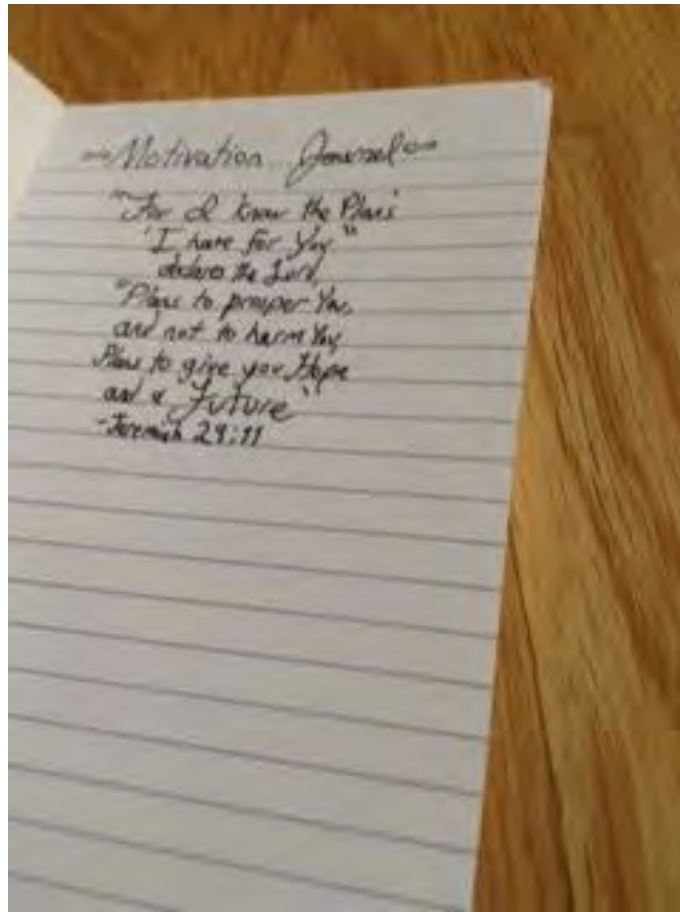 Motivation Journal
"For I know the Plans
I have for You"
declares the Lord,
"Plans to prosper You,
and not to harm You,
Plans to give you Hope
and a Future"
-Jeremiah 29:11